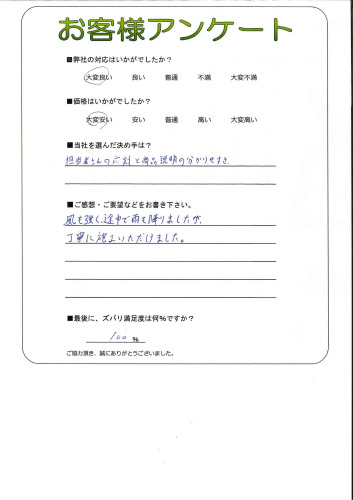 お客様アンケート
■弊社の対応はいかがでしたか？
大変良い 良い 普通 不満 大変不満
■価格はいかがでしたか？
大変安い 安い 普通 高い 大変高い
■当社を選んだ決め手は？
担当者さんの応対と商品説明の分かりやすさ
■ご感想・ご要望などをお書き下さい。
風も強く、途中で雨も降りましたが、
丁寧に施工いただけました。
■最後に、ズバリ満足度は何%ですか？
100 %
ご協力頂き、誠にありがとうございました。